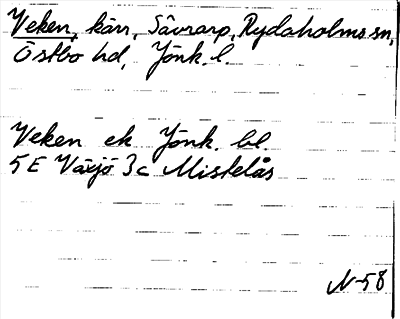 Veken, kärr, Sävrarp, Rydaholms sn,
Östbo hd, Jönk. l.
Veken ek Jönk. bl.
5 E Växjö 3c Mistelås
N-58